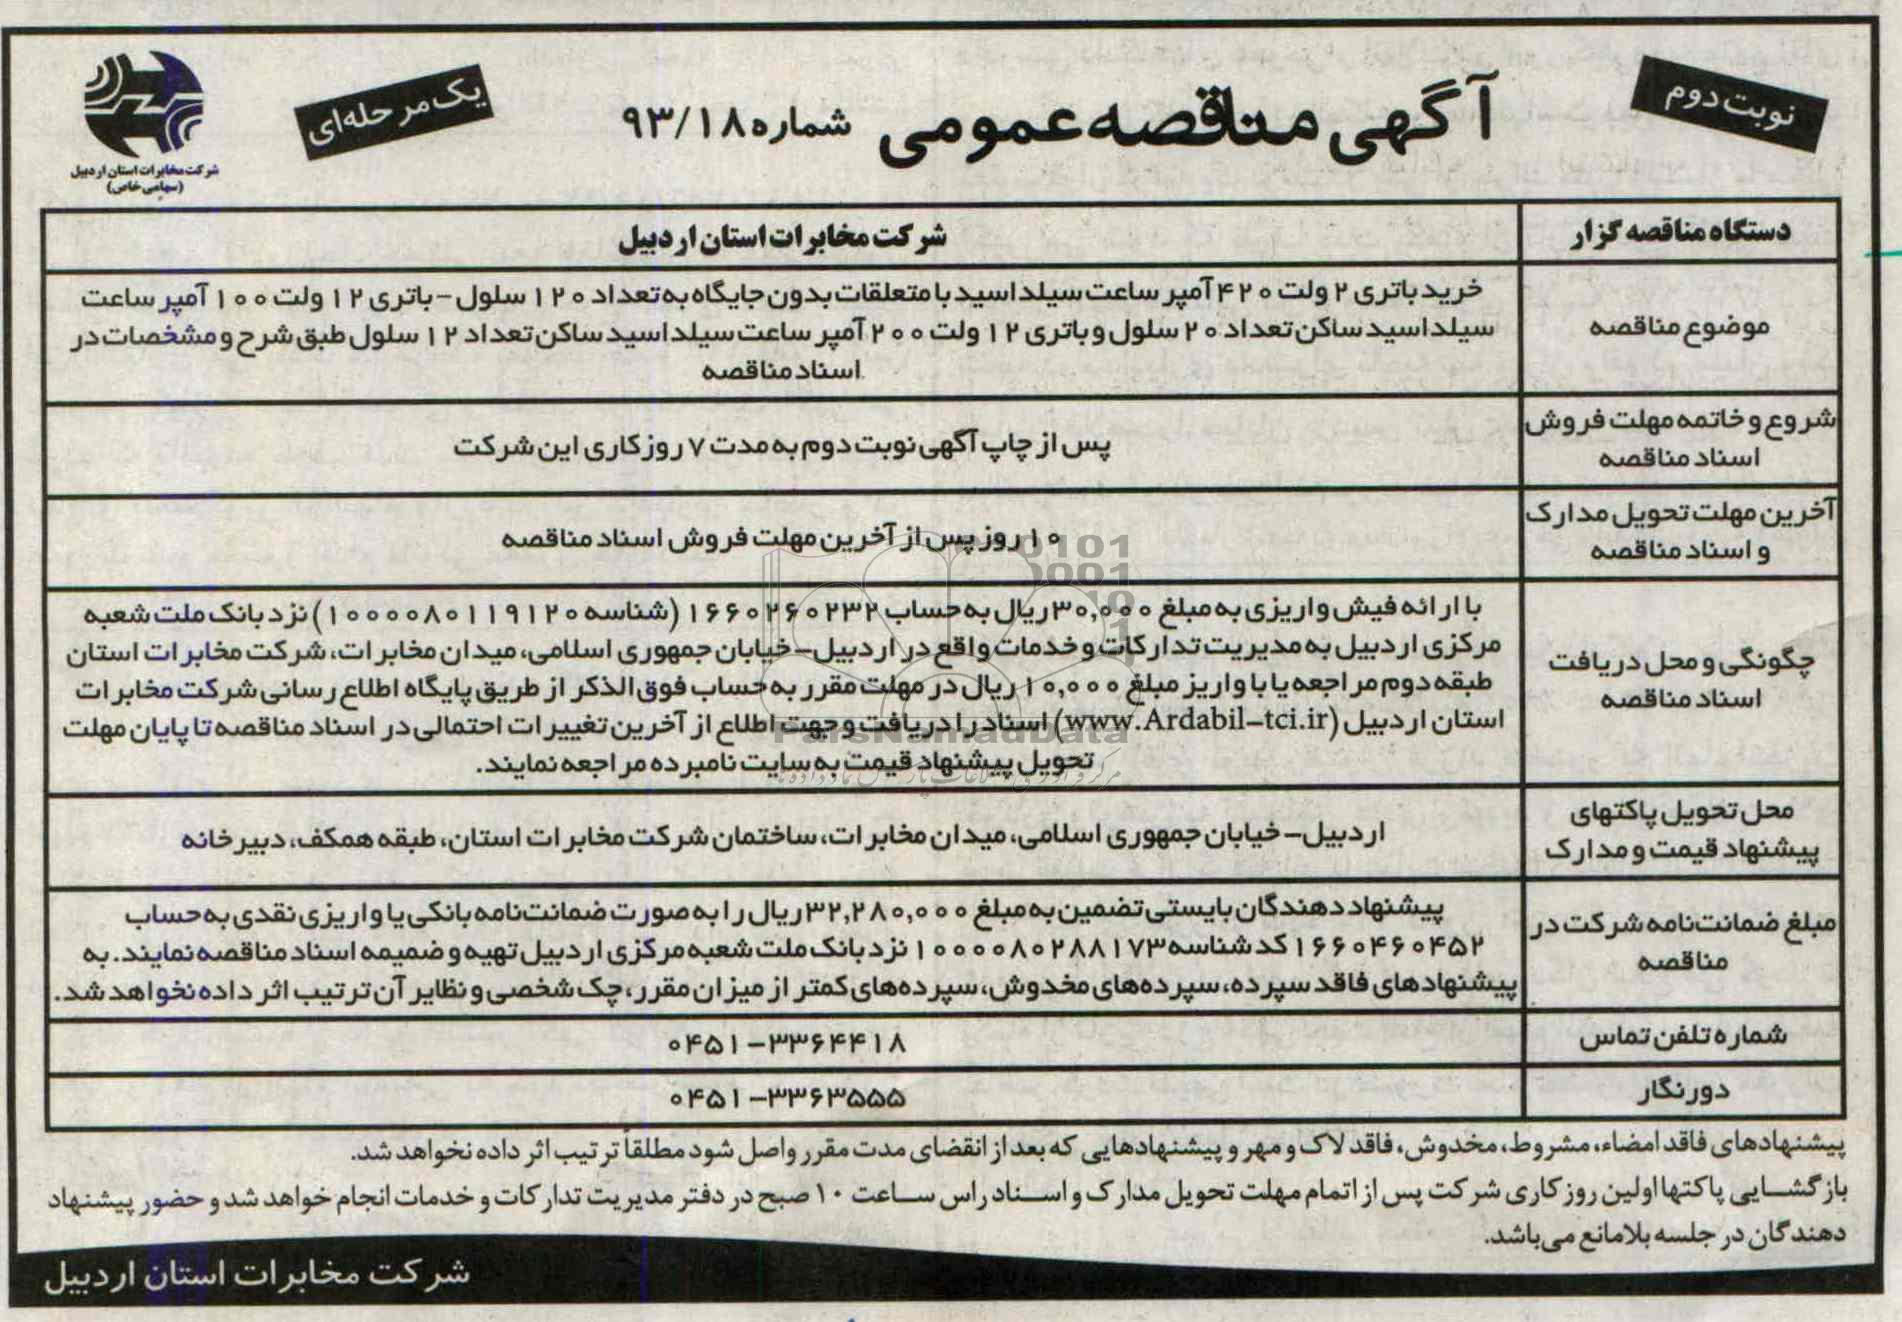 نوبت دوم
آگهی مناقصه عمومی شماره ۹۳/۱۸
یک مرحله‌ای
شرکت مخابرات استان اردبیل
(سهامی خاص)
دستگاه مناقصه گزار
شرکت مخابرات استان اردبیل
موضوع مناقصه
خرید باتری ۲ ولت ۴۲۰ آمپر ساعت سیلد اسید با متعلقات بدون جایگاه به تعداد ۱۲۰ سلول - باتری ۱۲ ولت ۱۰۰ آمپر ساعت
سیلد اسید ساکن تعداد ۲۰ سلول و باتری ۱۲ ولت ۲۰۰ آمپر ساعت سیلد اسید ساکن تعداد ۱۲ سلول طبق شرح و مشخصات در
اسناد مناقصه
شروع و خاتمه مهلت فروش
اسناد مناقصه
پس از چاپ آگهی نوبت دوم به مدت ۷ روز کاری این شرکت
آخرین مهلت تحویل مدارک
و اسناد مناقصه
۱۰ روز پس از آخرین مهلت فروش اسناد مناقصه
چگونگی و محل دریافت
اسناد مناقصه
با ارائه فیش واریزی به مبلغ ۳۰,۰۰۰ ریال به حساب ۱۶۶۰۲۶۰۲۳۲ (شناسه ۱۰۰۰۰۸۰۱۱۹۱۲۰) نزد بانک ملت شعبه
مرکزی اردبیل به مدیریت تدارکات و خدمات واقع در اردبیل- خیابان جمهوری اسلامی، میدان مخابرات، شرکت مخابرات استان
طبقه دوم مراجعه یا با واریز مبلغ ۱۰,۰۰۰ ریال در مهلت مقرر به حساب فوق الذکر از طریق پایگاه اطلاع رسانی شرکت مخابرات
استان اردبیل (www.Ardabil-tci.ir) اسناد را دریافت و جهت اطلاع از آخرین تغییرات احتمالی در اسناد مناقصه تا پایان مهلت
تحویل پیشنهاد قیمت به سایت نامبرده مراجعه نمایند.
محل تحویل پاکتهای
پیشنهاد قیمت و مدارک
اردبیل- خیابان جمهوری اسلامی، میدان مخابرات، ساختمان شرکت مخابرات استان، طبقه همکف، دبیرخانه
مبلغ ضمانت‌نامه شرکت در
مناقصه
پیشنهاد دهندگان بایستی تضمین به مبلغ ۳۲,۲۸۰,۰۰۰ ریال را به صورت ضمانت‌نامه بانکی یا واریزی نقدی به حساب
۱۶۶۰۴۶۰۴۵۲ کد شناسه ۱۰۰۰۰۸۰۲۸۸۱۷۳ نزد بانک ملت شعبه مرکزی اردبیل تهیه و ضمیمه اسناد مناقصه نمایند. به
پیشنهادهای فاقد سپرده، سپرده‌های مخدوش، سپرده‌های کمتر از میزان مقرر، چک شخصی و نظایر آن ترتیب اثر داده نخواهد شد.
شماره تلفن تماس
۰۴۵۱-۳۳۶۴۴۱۸
دورنگار
۰۴۵۱-۳۳۶۳۵۵۵
پیشنهادهای فاقد امضاء، مشروط، مخدوش، فاقد لاک و مهر و پیشنهادهایی که بعد از انقضای مدت مقرر واصل شود مطلقاً ترتیب اثر داده نخواهد شد.
بازگشایی پاکتها اولین روز کاری شرکت پس از اتمام مهلت تحویل مدارک و اسناد راس ساعت ۱۰ صبح در دفتر مدیریت تدارکات و خدمات انجام خواهد شد و حضور پیشنهاد
دهندگان در جلسه بلامانع می‌باشد.
شرکت مخابرات استان اردبیل
ParsNamadData